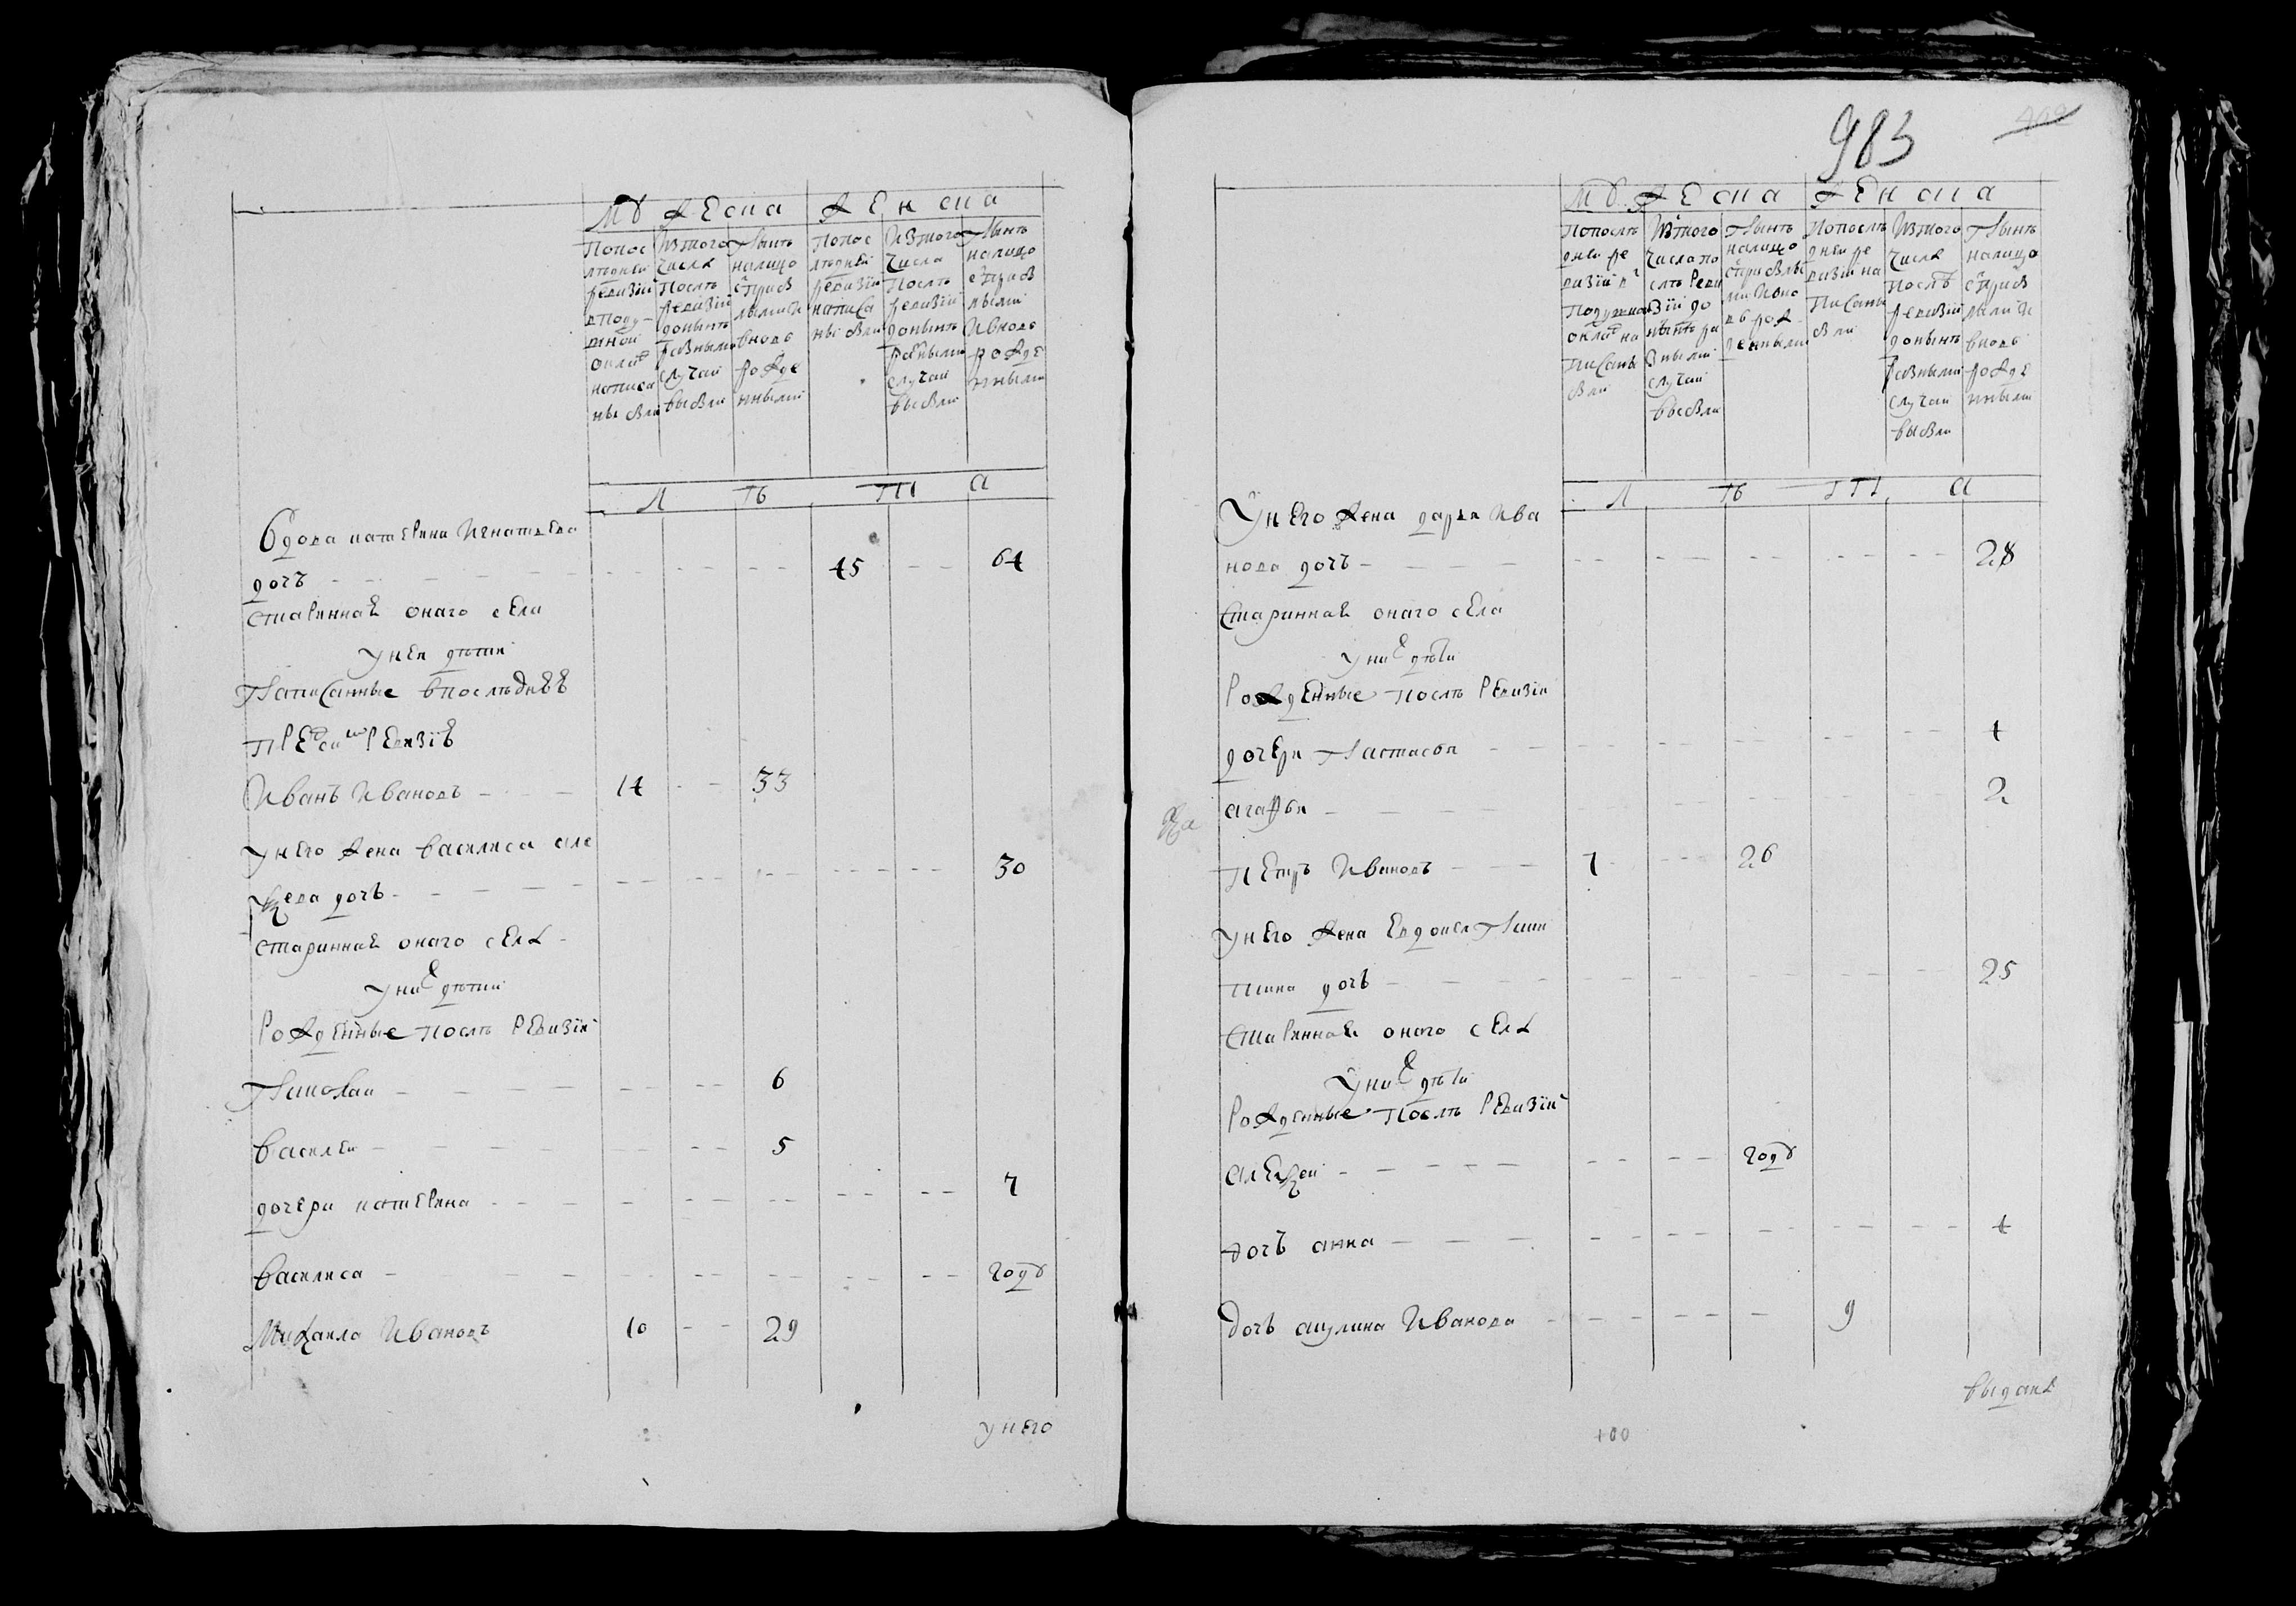 Мужеска Женска
Попос лѣдней ревизiи в поду шной оклад написа ны были
Из того числа послѣ ревизiи донынѣ разными случаи выбыли
Нынѣ налицо с прибылыми и вновь рожде нными
Попос лѣдней ревизiи написа ны были
Из того числа послѣ ревизiи донынѣ разными случаи выбыли
Нынѣ налицо с прибы лыми и вновь рожде нными
Л ѣ т а
Вдова катерина Игнатьева
дочь 45 64
старинная онаго села
у нея дѣти
Написанные в последнѣй
пред сим ревизiи
Иванъ Ивановъ 14 33
у него жена василиса але
ѯева дочь 30
старинная онаго села
у них дѣти
рожденные послѣ ревизiи
Николаи 6
василеи 5
дочери катерина 7
василиса году
Михаила Ивановъ 10 29
у него
983
Мужеска Женска
Попослѣ дней ре визiи в подушной оклад на писаны были
Из того числа по слѣ реви зiи до нынѣ ра зными случаи выбыли
Нынѣ налицо с прибылы ми и вно вь рож денными
Попослѣ дней ре визiи на писаны были
Из того числа послѣ ревизiи донынѣ разными случаи выбыли
Нынѣ налицо с прибы лыми и вновь рожде нными
Л ѣ т а
У него жена дарья Ива
нова дочь 28
Старинная онаго села
у них дѣти
рожденные послѣ ревизiи
дочери Настасья 4
агафья 2
Петръ Ивановъ 7 26
у него жена Евдокея Ники
тина дочь 25
Старинная онаго села
У них дѣти
рожденные послѣ ревизiи
алеѯеи году
дочь анна 4
дочь акулина Иванова 9
выдана